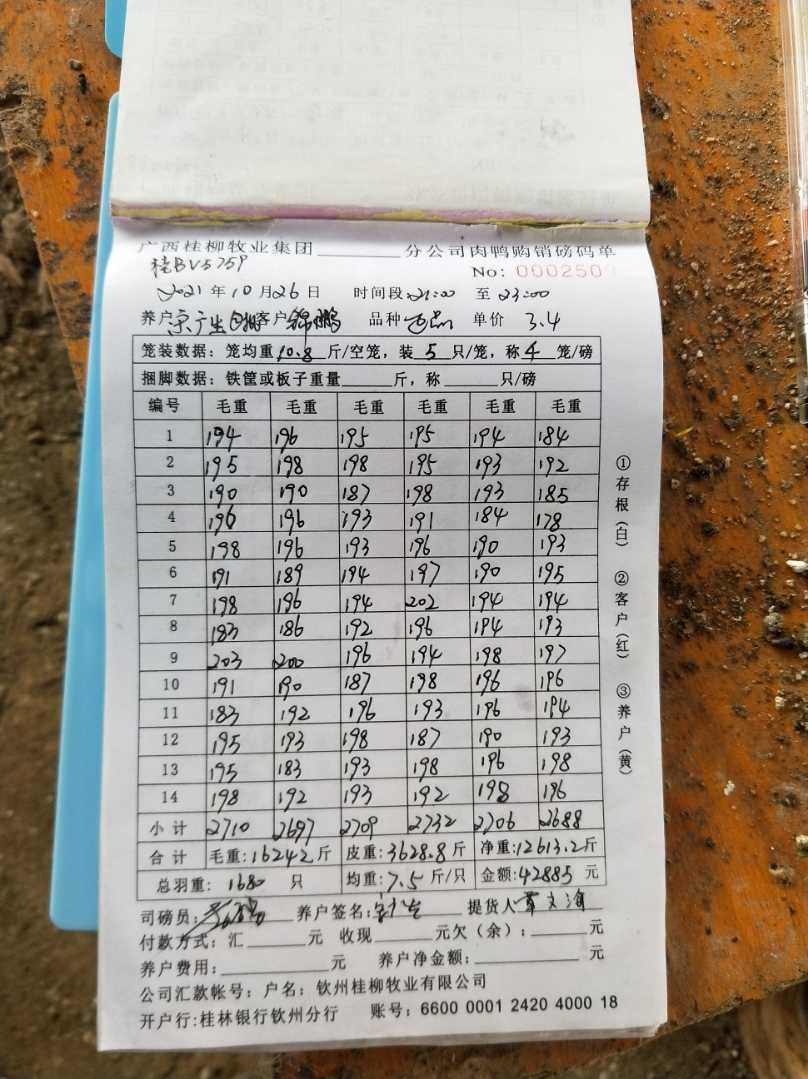 广西桂柳牧业集团________分公司肉鸭购销磅码单
桂BV5759
No: 000250
2021 年 10 月 26 日 时间段 21:00 至 23:00
养户 客户 锦鹏 品种 单价 3.4
笼装数据：笼均重 10.8 斤/空笼，装 5 只/笼，称 4 笼/磅
捆脚数据：铁筐或板子重量______斤，称______只/磅
编号 毛重 毛重 毛重 毛重 毛重 毛重
1 194 196 195 195 194 184
2 195 198 198 195 193 192
3 190 190 187 198 193 185
4 196 196 193 191 184 178
5 198 196 193 196 190 193
6 191 189 194 197 190 195
7 198 196 194 202 194 194
8 183 186 192 196 194 193
9 203 200 196 194 198 197
10 191 190 187 198 196 196
11 183 192 196 193 196 194
12 195 193 198 187 190 193
13 195 183 193 198 196 198
14 198 192 193 192 198 196
小计 2710 2697 2709 2732 2706 2688
合计 毛重:16242斤 皮重:3628.8斤 净重:12613.2斤
总羽重: 1680 只 均重:7.5斤/只 金额:42885元
司磅员: 养户签名: 提货人
付款方式：汇______元 收现______元欠（余）：______元
养户费用：______元 养户净金额：______元
公司汇款帐号：户名：钦州桂柳牧业有限公司
开户行:桂林银行钦州分行 账号：6600 0001 2420 4000 18
①存根（白） ②客户（红） ③养户（黄）